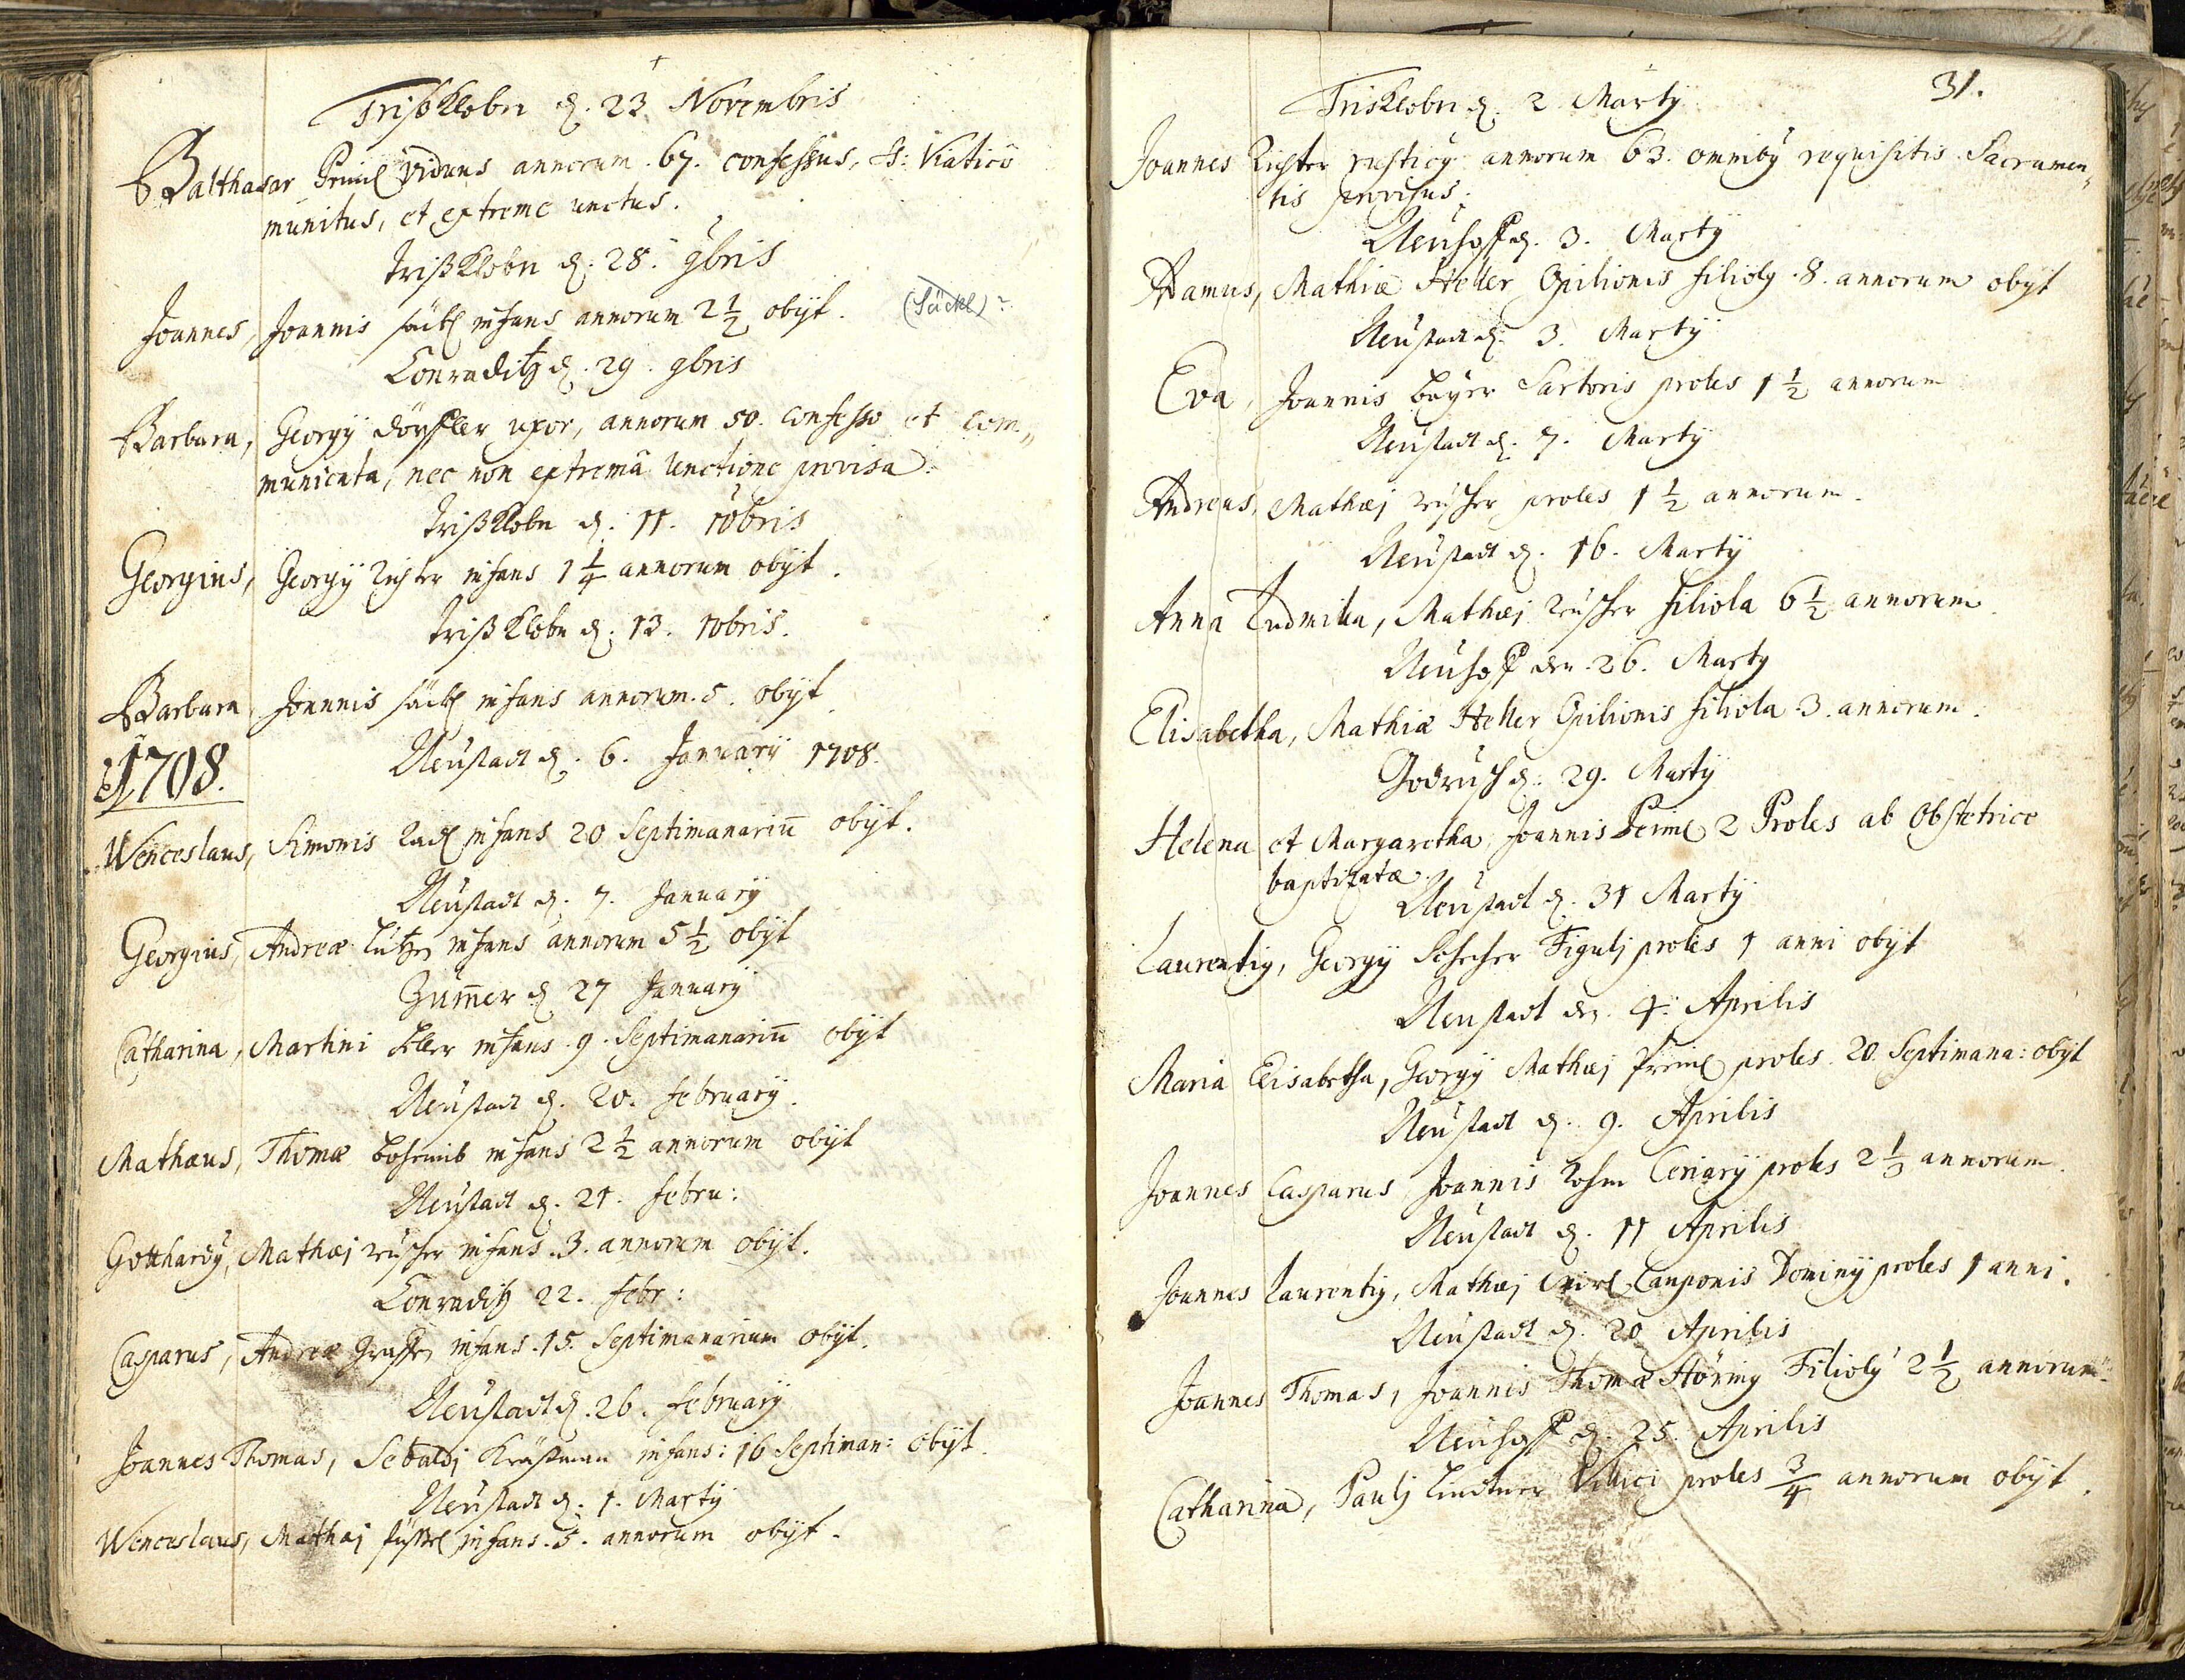 Trißklobn d. 23 Novembris
Balthasar Preinl viduus annorum 67. confessus, S: Viatico
munitus, et extreme unctus.
Trißklobn d. 28. 9bris
Joannes, Joannis säckl infans annorum 2 1/2 obijt. (Säckl)?
Conraditz d. 29. 9bris
Barbara, Georgÿ dörffler uxor, annorum 50. confesso et com„
municata, nec non extremâ Unctione provisa.
Trißklobn d. 11. 10bris
Georgius, Georgÿ Richter infans 1 1/4 annorum obijt.
Trißklobn d. 13. 10bris.
Barbara Joannis säckl infans annorum 5. obijt
1708. Neustadt d. 6. Januarÿ 1708.
Wenceslaus, Simonis infans 20 Septimanariū obijt.
Neustadt d. 7. Januarÿ
Georgius, Andreæ infans annorum 5 1/2 obijt
Zum̄er d 27 Januarÿ
Catharina, Martini infans 9. Septimanariū obijt
Neustadt d. 20. februarÿ.
Mathæus, Thomæ infans 2 1/2 annorum obijt
Neustadt d. 21. febru:
Gotthardg, Mathæj infans 3. annorum obijt.
Conraditz 22. febr:
Casparus, Andreæ infans 15. Septimanarium obijt.
Neustadt d. 26. februarÿ
Joannes Thomas, Sebaldj infans: 16 Septiman: obijt.
Neustadt d. 1. Martÿ
Wenceslaus, Mathæj infans 5. annorum obijt.
31.
Trisklobn d. 2 Martÿ
Joannes Richter rusticg annorum 63. omnibg requisitis Sacramen„
tis provisus.
Neuhoff d. 3. Martÿ
Adamus, Mathiæ Heller Opilionis filiolg 8. annorum obijt
Neustadt d. 3. Martÿ
Eva, Joannis Bayer Sartoris proles 1 1/2 annorum
Neustadt d. 7. Martÿ
Andreas, Mathæj proles 1 1/2 annorum.
Neustadt d. 16. Martÿ
Anna Ludmilla, Mathæj filiola 6 1/2 annorum.
Neuhoff den 26. Martÿ
Elisabetha, Mathiæ Heller Opilionis filiola 3. annorum.
Godrusch d. 29. Martÿ
Helena et Margaretha Joannis Preinl 2 Proles ab Obstetrice
baptizatæ.
Neustadt d. 31 Martÿ
Laurentig, Georgÿ Figulj proles 1 anni obijt
Neustadt den 4. Aprilis
Maria Elisabetha, Georgÿ Mathæj Preinl proles 20. Septimana: obijt
Neustadt d. 9. Aprilis
Joannes Casparus Joannis proles 2 1/3 annorum.
Neustadt d. 11 Aprilis
Joannes Laurentig, Mathæj Cauponis Dominÿ proles 1 anni.
Neustadt d. 20 Aprilis
Joannes Thomas, Joannis Thomæ Höning Filiolg 2 1/2 annorum.
Neuhoff d. 25. Aprilis
Catharina, Paulj Lindtner Villici proles 3/4 annorum obijt.